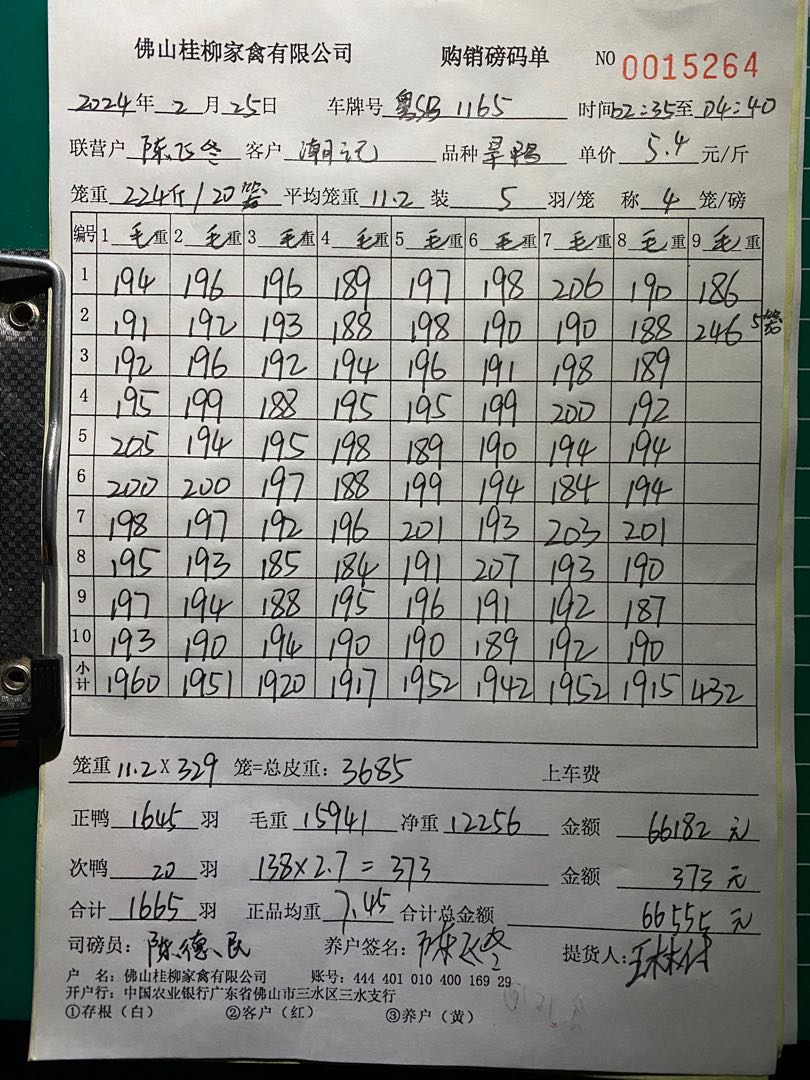 佛山桂柳家禽有限公司 购销磅码单 NO 0015264
2024年 2 月 25日 车牌号 1165 时间02:35至 04:40
联营户 陈飞冬 客户 潮记 品种 旱鸭 单价 5.4 元/斤
笼重 224斤/20笼 平均笼重 11.2 装 5 羽/笼 称 4 笼/磅
编号 1 毛重 2 毛重 3 毛重 4 毛重 5 毛重 6 毛重 7 毛重 8 毛重 9 毛重
1 194 196 196 189 197 198 206 190 186
2 191 192 193 188 198 190 190 188 246 5笼
3 192 196 192 194 196 191 198 189
4 195 199 188 195 195 199 200 192
5 205 194 195 198 189 190 194 194
6 200 200 197 188 199 194 184 194
7 198 197 192 196 201 193 203 201
8 195 193 185 184 191 207 193 190
9 197 194 188 195 196 191 192 187
10 193 190 194 190 190 189 192 190
小计 1960 1951 1920 1917 1952 1942 1952 1915 432
笼重 11.2 X 329 笼=总皮重: 3685 上车费
正鸭 1645 羽 毛重 15941 净重 12256 金额 66182 元
次鸭 20 羽 138×2.7=373 金额 373 元
合计 1665 羽 正品均重 7.45 合计总金额 66555 元
司磅员: 陈德民 养户签名: 陈飞冬 提货人:
户 名: 佛山桂柳家禽有限公司 账号: 444 401 010 400 169 29
开户行: 中国农业银行广东省佛山市三水区三水支行
①存根(白) ②客户(红) ③养户(黄)